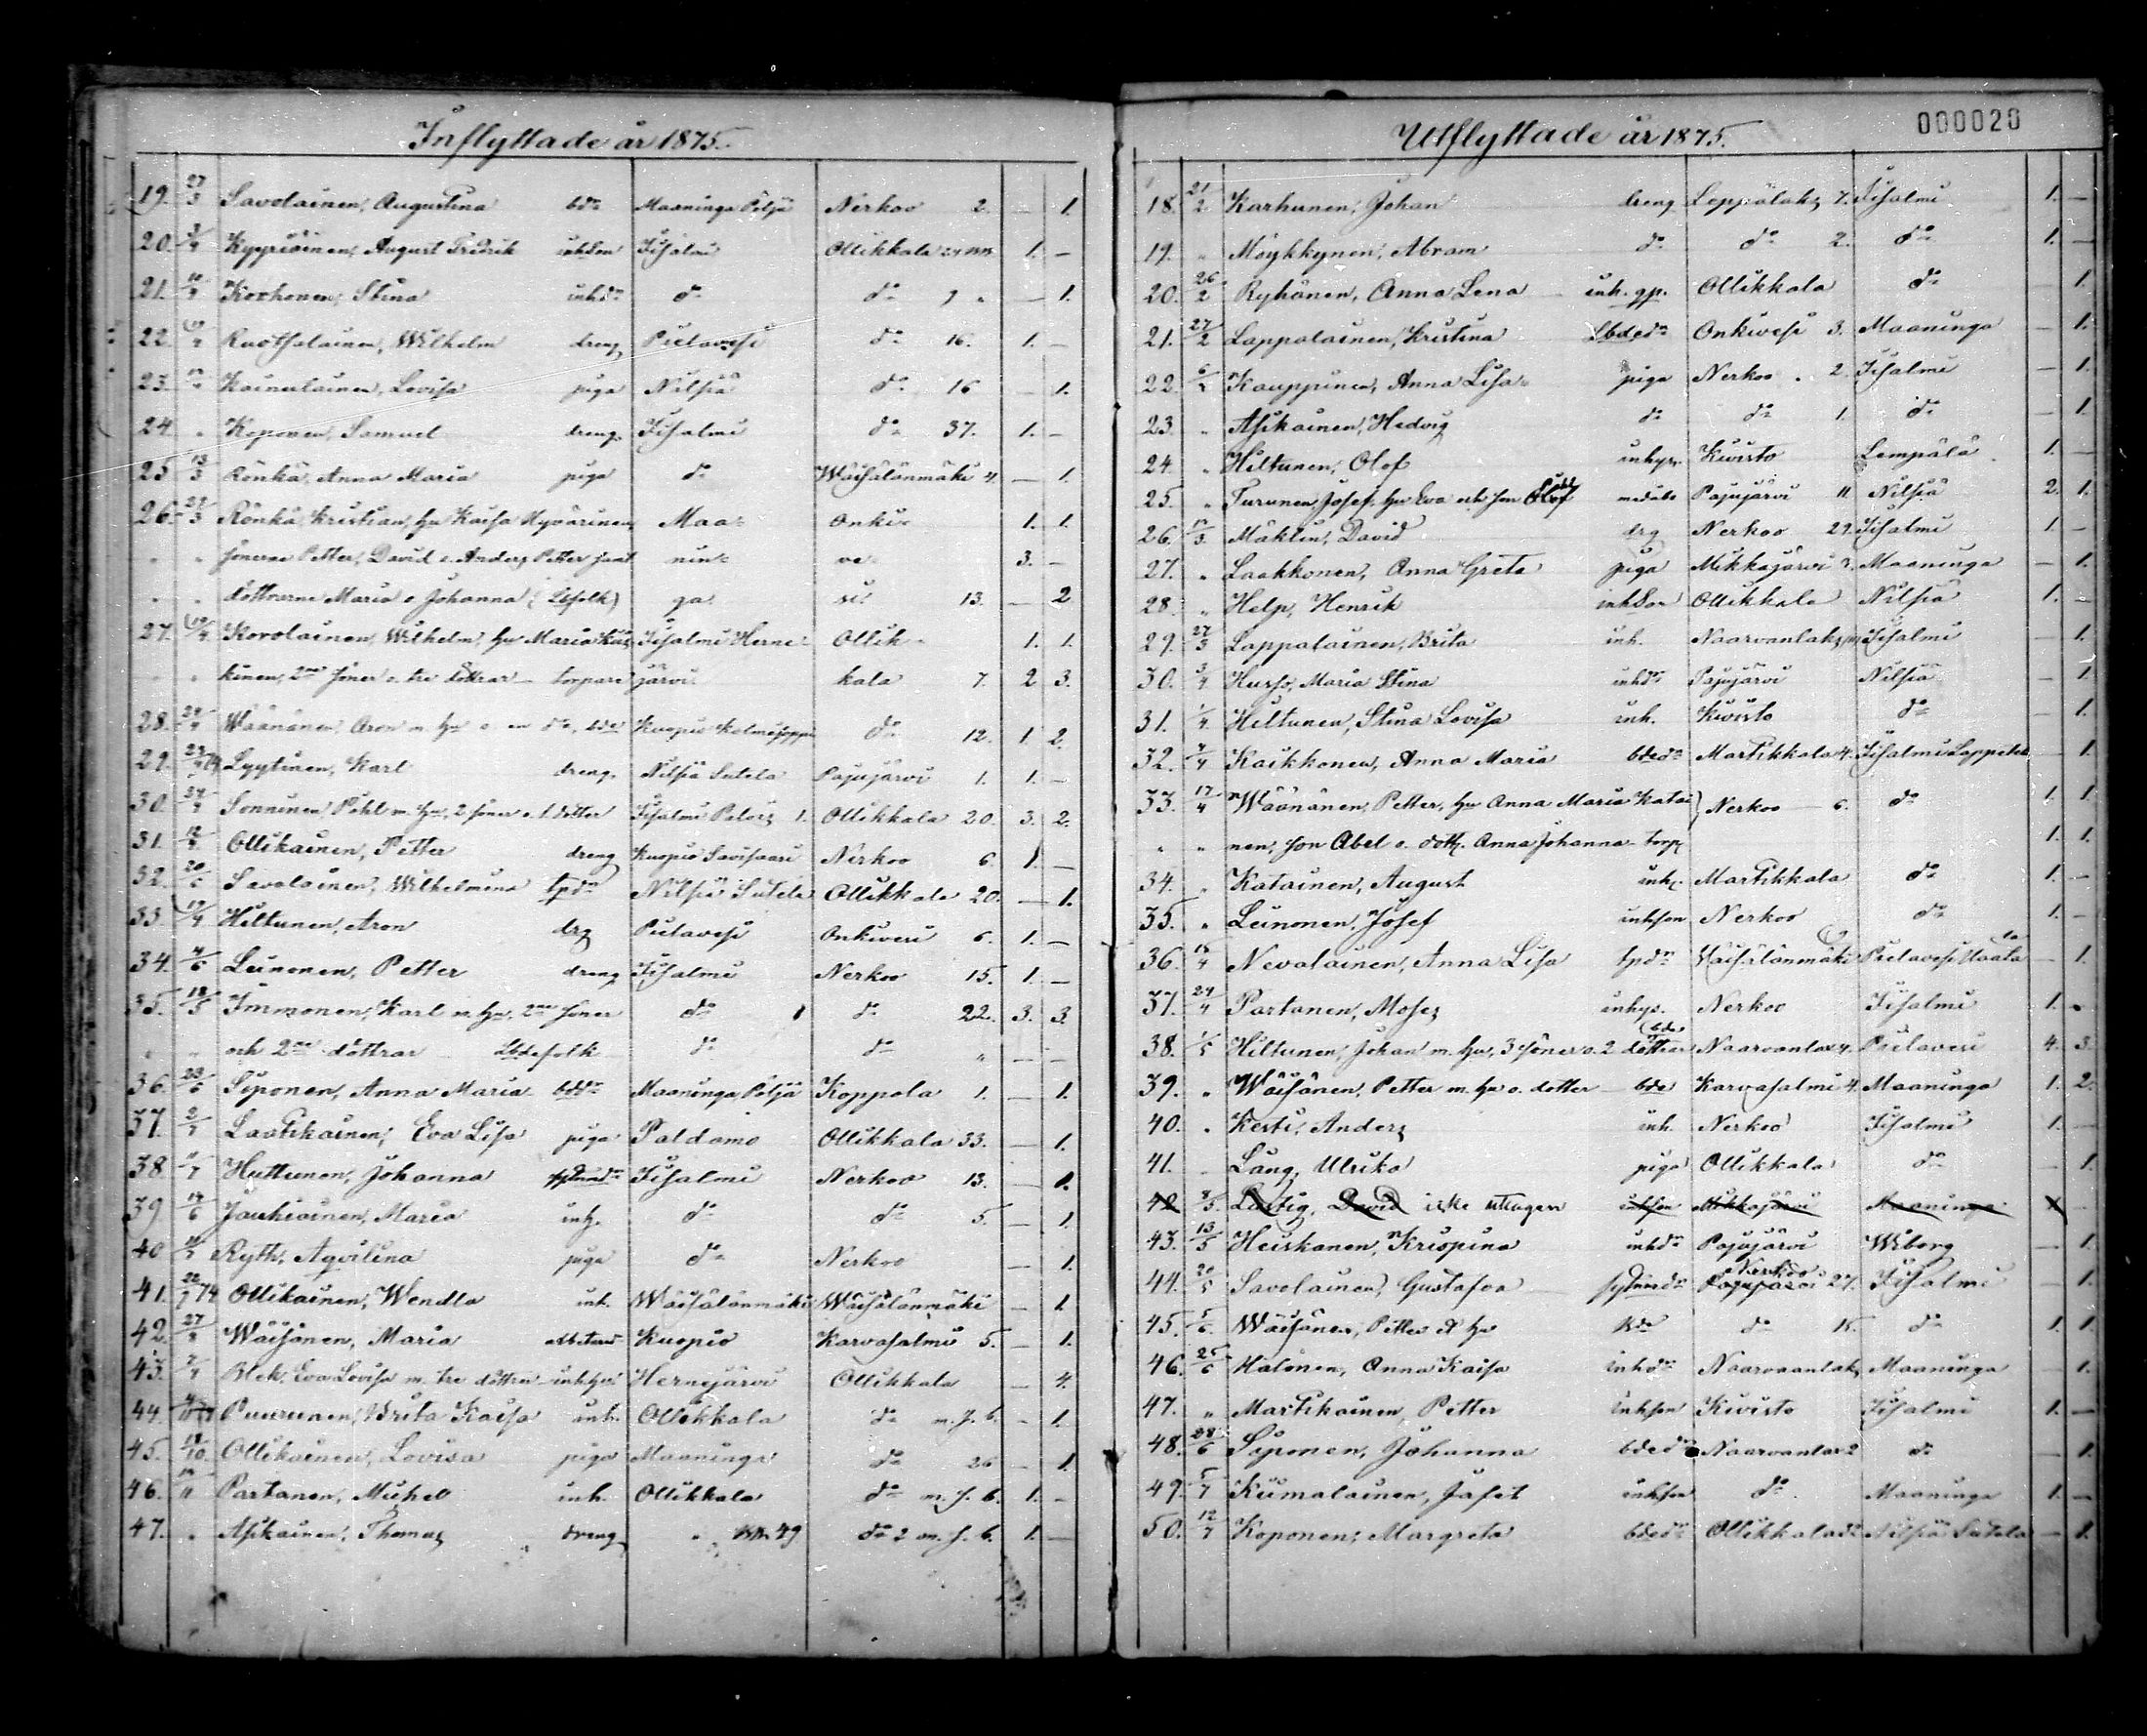 Inflyttade år 1875.
19. 27/3 Savolainen, Augustina bdn Maaninga Pöljä Nerkoo 2. — 1.
20. 3/4 Kyyriäinen, August Fredrik inhson Iisalmi Ollikkala 1. —
21. Korhonen, Stina inhdn do do 9 — 1.
22. Ruotsalainen, Wilhelm dreng Pielavesi do 16. 1. —
23. Kainulainen, Lovisa piga Nilsiä do 16 — 1.
24. " Koponen, Samuel dreng Iisalmi do 37. 1. —
25 13/3 Rönkä, Anna Maria piga do Wäisälänmäki 4. — 1.
26. 27/3 Rönkä, Kristian, hu Kaisa Hyvärinen Maa- Onki- 1. 1.
" " sönerne Petter, David o. Anders Petter samt nin- ve- 3. —
" " döttrarne Maria o Johanna ga. si. 13. — 2
27. Korolainen, Wilhelm, hu Maria Iisalmi Herne- Ollik- 1. 1.
" " kinen, 2ne söner o. tre döttrar — torpare järvi kala 7. 2 3.
28. Wäänänen, Aron m hu o en dr, bde Kuopio do 12. 1 2.
29. Lyytinen, Karl dreng. Nilsiä Sutela Pajujärvi 1. 1. —
30. Sonninen, Påhl m. hu, 2 söner o. 1. dotter Iisalmi 1. Ollikkala 20. 3. 2.
31. Ollikainen, Petter dreng Kuopio Savisaari Nerkoo 6 1. —
32. Savolainen, Wilhelmina tpdn Nilsiä Sutela Ollikkala 20. — 1.
33. Hiltunen, Aron drg Pielavesi Onkivesi 6. 1. —
34. Leinonen, Petter dreng Iisalmi Nerkoo 15. 1. —
35. 18/5 Immonen, Karl m. hu, 2ne söner do do 22. 3. 3.
" " och 2ne döttrar Lbdefolk do do " — —
36. Siponen, Anna Maria bddn Maaninga Pöljä Koppola 1. — 1.
37. 2/7 Laatikainen, Eva Lisa piga Paldamo Ollikkala 33. — 1.
38 Huttunen, Johanna Iisalmi Nerkoo 13. — 1.
39. 14/6 Jauhiainen, Maria inh. do do 5. — 1.
40 Ryth, Aqvilina piga do Nerkoo — 1.
41. Ollikainen, Wendla inh. Wäisälänmäki Wäisälänmäki — 1.
42. 27/8 Wäisänen, Maria Kuopio Karvasalmi 5. — 1.
43. Blek, Eva Lovisa m. tre döttrar Hernejärvi Ollikkala — 4.
44. Puurunen, Brita Kaisa inh. Ollikkala do m. f. b. — 1.
45. 18/10 Ollikainen, Lovisa piga Maaninga do 26 — 1.
46. Partanen, Michel inh. Ollikkala do m. f. b. 1. —
47. " Asikainen, Thomas dreng " 49 do 2 m. f. b. 1. —
Utflyttade år 1875.
000020
18. 21/2 Karhunen, Johan dreng Leppälaks 7. Iisalmi 1. —
19. " Möykkynen, Abram do do 2. do 1. —
20. 26/2 Ryhänen, Anna Lena inh. gp. Ollikkala do — 1.
21. 27/2 Lappalainen, Kristina Lbdedn Onkivesi 3. Maaninga — 1.
22. Kauppinen, Anna Lisa piga Nerkoo 2. Iisalmi — 1.
23. " Asikainen, Hedvig do do 1. do — 1.
24. " Hiltunen, Olof inhys. Kivisto Lempälä 1. —
25. " Turunen, Josef, hu Eva och son Pajujärvi 11. Nilsiä 2. 1.
26. Mäklin, David drg Nerkoo 29. Iisalmi 1. —
27. " Laakkonen, Anna Greta piga Mikkajärvi 3. Maaninga — 1.
28. " Help, Henrik inhson Ollikkala Nilsiä 1. —
29. 27/3 Lappalainen, Brita inh. Naarvanlaks Iisalmi — 1.
30. 3/4 Husso, Maria Stina inhdn Pajujärvi Nilsiä — 1.
31. 1/4 Hiltunen, Stina Lovisa inh. Kivisto do — 1.
32. Kaikkonen, Anna Maria bdedn Martikkala 4. Iisalmi — 1.
33. 17/4 Wäänänen, Petter, hu Anna Maria Katai Nerkoo — 6. do 1. 1.
" " nen, son Abel o. dott. Anna Johanna torp. 1. 1.
34. " Katainen, August inh. Martikkala do 1. —
35. " Leinonen, Josef inhson Nerkoo do 1. —
36. 18/4 Nevalainen, Anna Lisa tpdn Wäisälänmäki Pielavesi — 1.
37. 24/4 Partanen, Moses inhys. Nerkoo Iisalmi 1. —
38. 1/5 Hiltunen, Johan m. hu, 3 söner o. 2 döttrar bde Naarvanlax 4. Pielavesi 4. 3.
39. " Wäisänen, Petter m. hu o. dotter — bde Karvasalmi 4. Maaninga 1. 2.
40. " Kesti, Anders inh. Nerkoo Iisalmi 1. —
41. Lång, Ulrika piga Ollikkala do — 1.
42 8/5 Lustig, David icke uttagen inhson Mikkajärvi Maaninga
43. 13/5 Heiskanen, Krispina inhdn Pajujärvi Wiborg — 1.
44. 20/5 Savolainen, Gustafva Nerkoo Pajujärvi 27. Iisalmi — 1.
45. 5/6 Wäisänen, Petter & hu bde do 15. do 1. 1.
46. 25/6 Halonen, Anna Kaisa inhdn Naarvaanlaks Maaninga — 1.
47. " Martikainen, Petter inhson Kivisto Iisalmi 1. —
48. 28/6 Siponen, Johanna bdedn Naarvanlax 2 do — 1.
49. 5/7 Kiimalainen, Josef inhson do Maaninga 1. —
50. 12/7 Koponen, Margreta bdedn Ollikkala Nilsiä Sutela — 1.